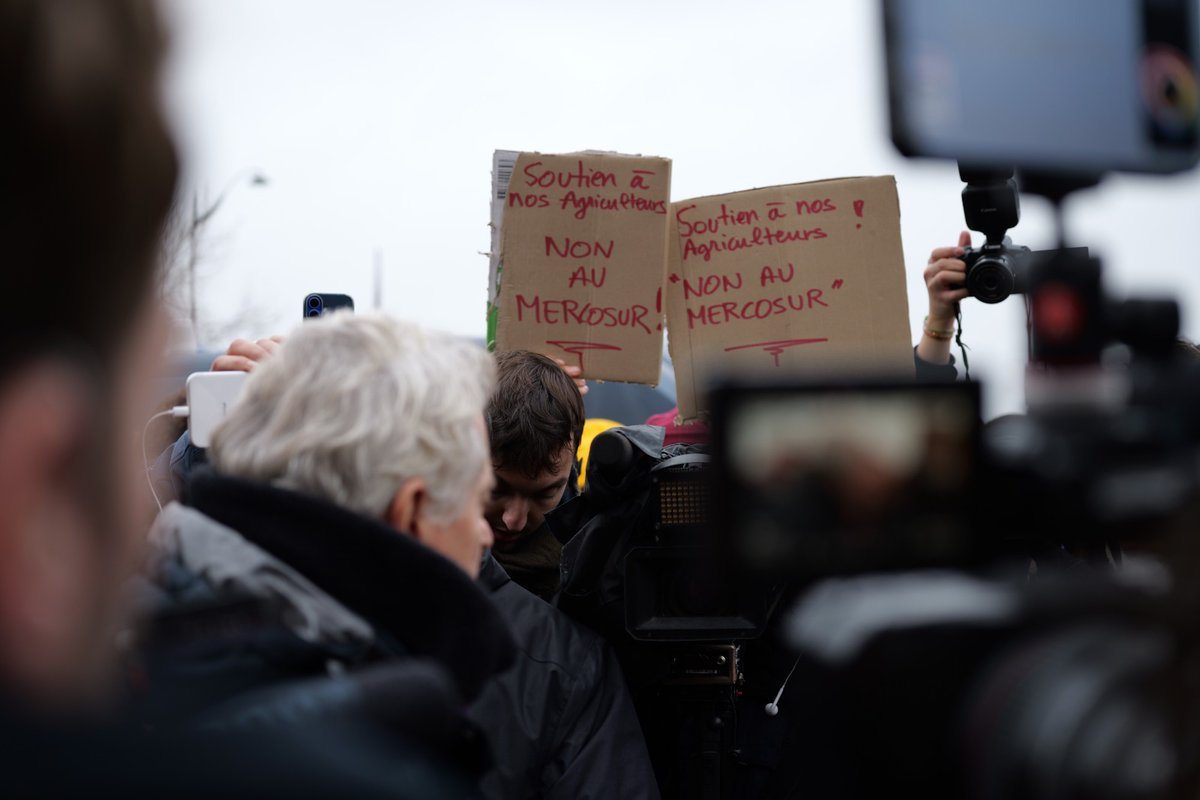 Soutien ā
nos Agriculteurs
NON
AU
MERCOSUR!
Soutien ā nos !
Agriculteurs
"NON AU
MERCOSUR"